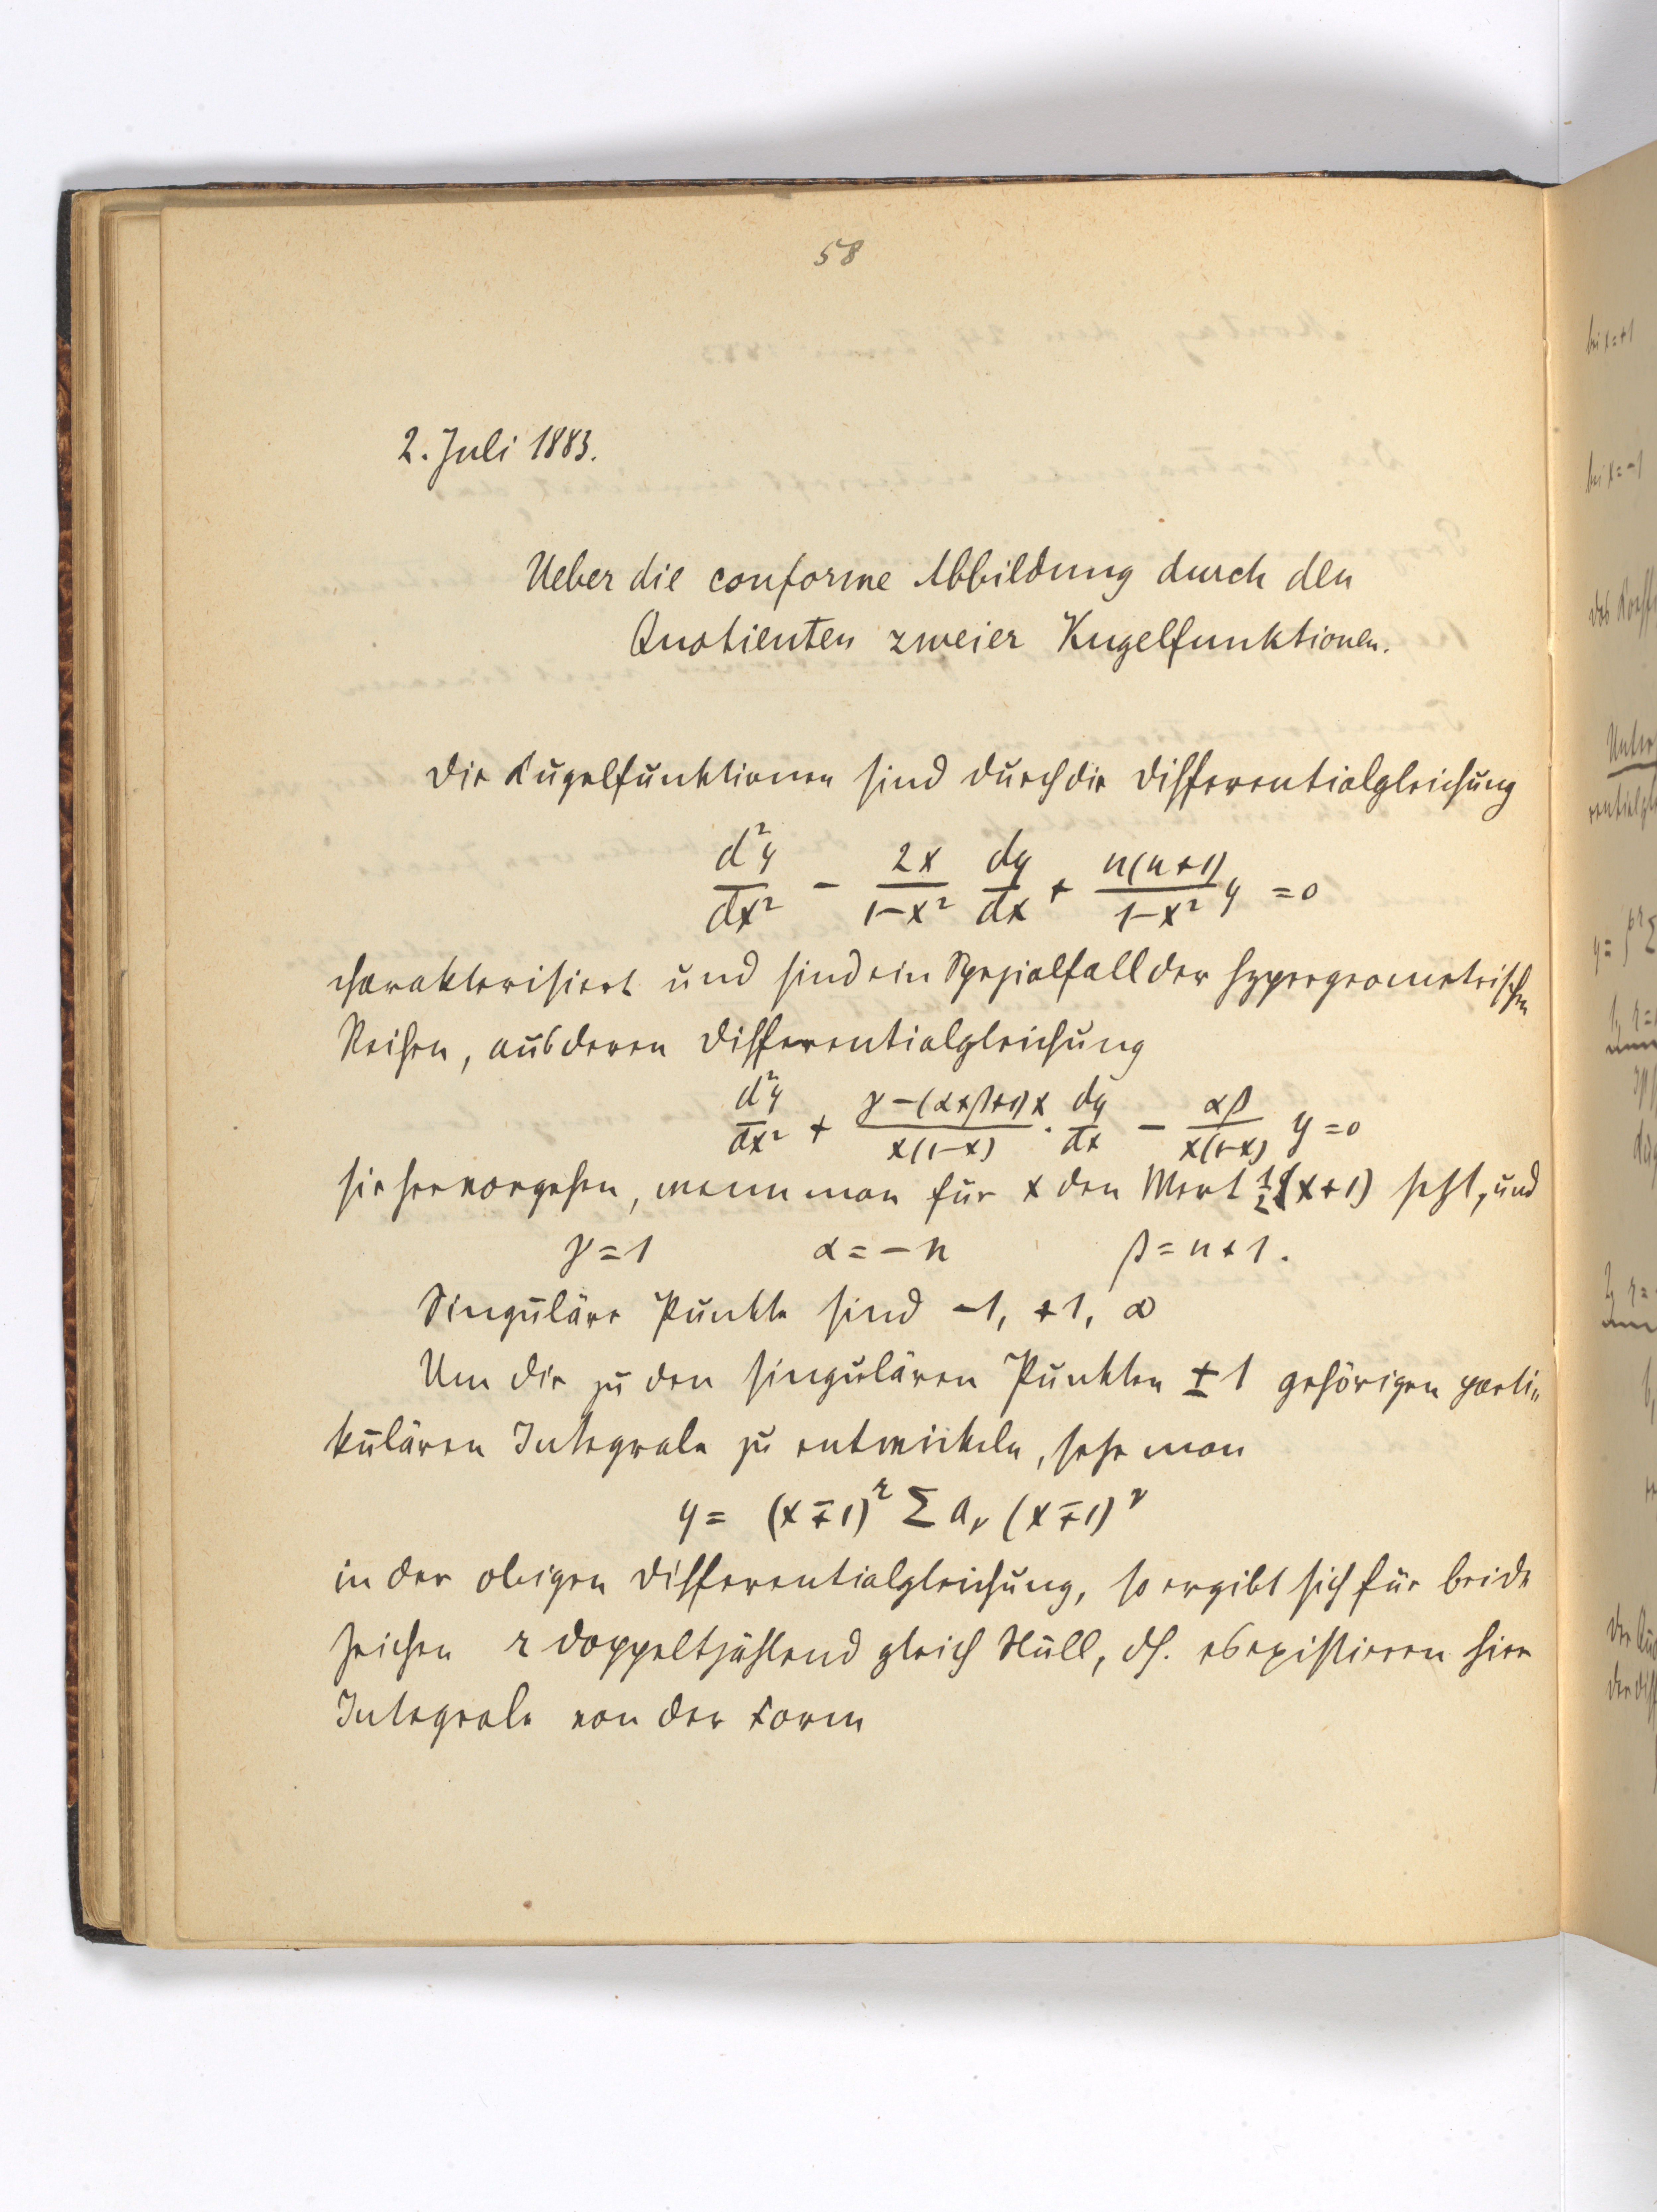 58
2. Juli 1883.
Ueber die conforme Abbildung durch den
Quotienten zweier Kugelfunktionen.
Die Kugelfunktionen sind durch die Differentialgleichung
d²y/dx² - 2x/(1-x²) dy/dx + n(n+1)/(1-x²) y = 0
charakterisiert und sind ein Spezialfall der hypergeometrischen
Reihen, aus deren Differentialgleichung
d²y/dx² + (γ-(α+β+1)x)/(x(1-x)) · dy/dx - αβ/(x(1-x)) y = 0
sie hervorgehen, wenn man für x den Wert ½(x+1) setzt, und
γ=1 α=-n β=n+1.
Singuläre Punkte sind -1, +1, ∞
Um die zu den singulären Punkten ±1 gehörigen parti-
kulären Integrale zu entwickeln, setze man
y = (x∓1)^r Σ a_ν (x∓1)^ν
in der obigen Differentialgleichung, so ergibt sich für beide
Zeichen r doppeltzählend gleich Null, dh. es existieren hier
Integrale von der Form
bei x=+1
bei x=-1